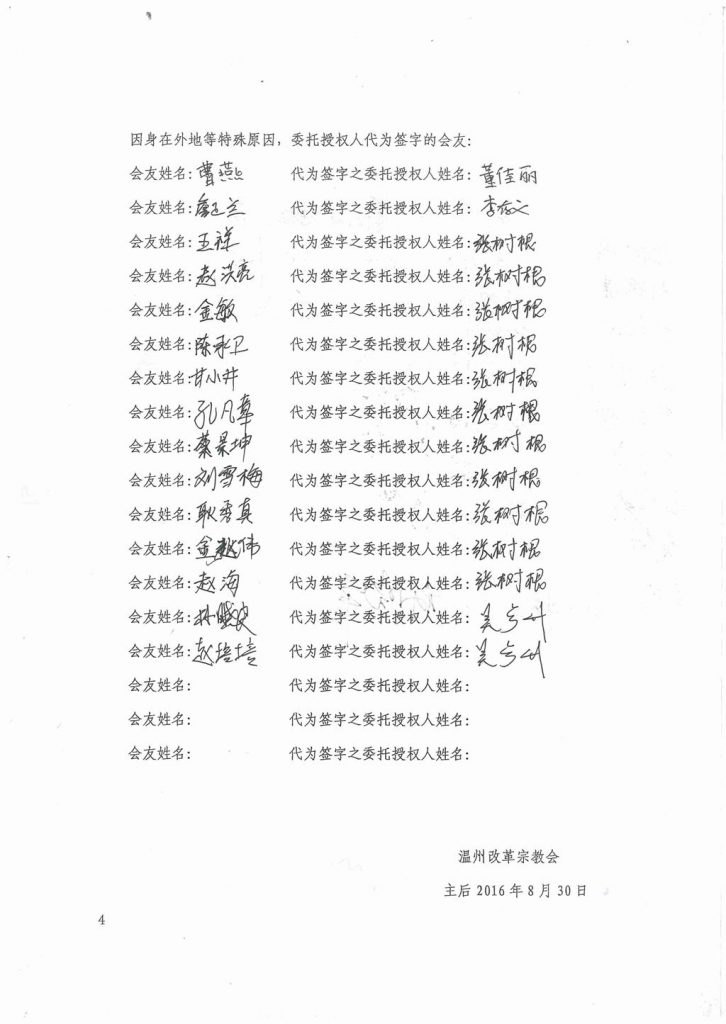 因身在外地等特殊原因，委托授权人代为签字的会友：
会友姓名：曹燕 代为签字之委托授权人姓名：董佳丽
会友姓名： 代为签字之委托授权人姓名：李存义
会友姓名：王禄 代为签字之委托授权人姓名：张树根
会友姓名：赵洪亮 代为签字之委托授权人姓名：张树根
会友姓名：金敏 代为签字之委托授权人姓名：张树根
会友姓名：陈承卫 代为签字之委托授权人姓名：张树根
会友姓名：甘小井 代为签字之委托授权人姓名：张树根
会友姓名：孔凡章 代为签字之委托授权人姓名：张树根
会友姓名：蔡景坤 代为签字之委托授权人姓名：张树根
会友姓名：刘雪梅 代为签字之委托授权人姓名：张树根
会友姓名：耿秀真 代为签字之委托授权人姓名：张树根
会友姓名：金越伟 代为签字之委托授权人姓名：张树根
会友姓名：赵海 代为签字之委托授权人姓名：张树根
会友姓名：孙晓 代为签字之委托授权人姓名：吴
会友姓名：赵培培 代为签字之委托授权人姓名：吴
会友姓名： 代为签字之委托授权人姓名：
会友姓名： 代为签字之委托授权人姓名：
会友姓名： 代为签字之委托授权人姓名：
温州改革宗教会
主后 2016 年 8 月 30 日
4